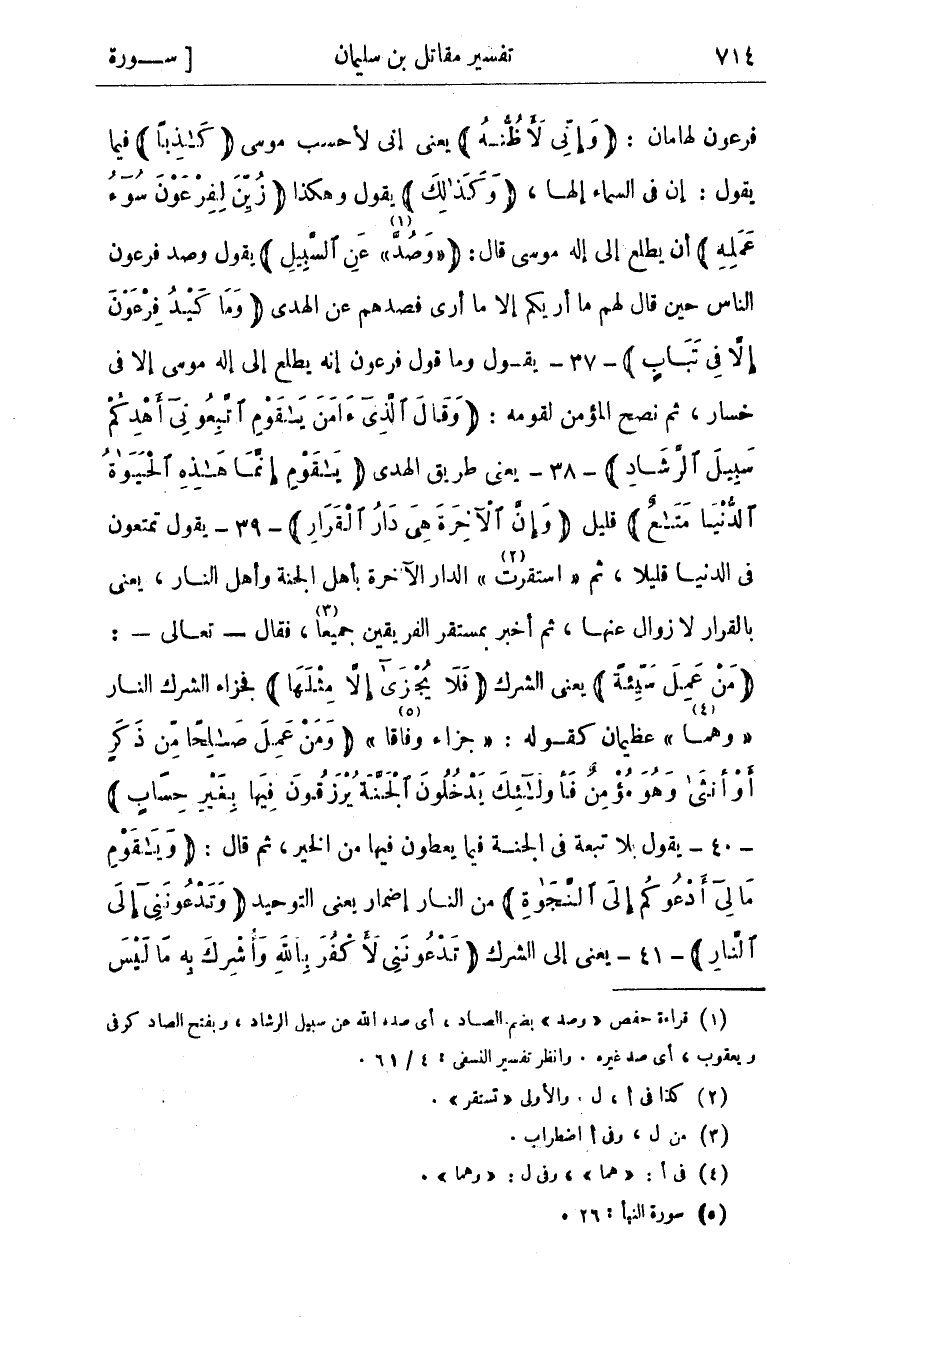 ٧١٤ تفسير مقاتل بن سليمان [ ســـورة
فرعون لهامان : ﴿ وَإِنِّى لَأَظُنُّـهُ ﴾ يعنى إنى لأحسب موسى ﴿ كَـٰذِبًا ﴾ فيما
يقول : إن فى السماء إلهـا ، ﴿ وَكَذَٰلِكَ ﴾ يقول وهكذا ﴿ زُيِّنَ لِفِرْعَوْنَ سُوٓءُ
عَمَلِهِ ﴾ أن يطلع إلى إله موسى قال : ﴿ « وَصُدَّ » (١) عَنِ ٱلسَّبِيلِ ﴾ يقول وصد فرعون
الناس حين قال لهم ما أريكم إلا ما أرى فصدهم عن الهدى ﴿ وَمَا كَيْـدُ فِرْعَوْنَ
إِلَّا فِى تَبَـابٍ ﴾ - ٣٧ - يقـول وما قول فرعون إنه يطلع إلى إله موسى إلا فى
خسار ، ثم نصح المؤمن لقومه : ﴿ وَقَالَ ٱلَّذِىٓ ءَامَنَ يَـٰقَوْمِ ٱتَّبِعُونِىٓ أَهْدِكُمْ
سَبِيلَ ٱلرَّشَـادِ ﴾ - ٣٨ - يعنى طريق الهدى ﴿ يَـٰقَوْمِ إِنَّمَـا هَـٰذِهِ ٱلْحَيَوٰةُ
ٱلدُّنْيَـا مَتَـٰعٌ ﴾ قليل ﴿ وَإِنَّ ٱلْآخِرَةَ هِىَ دَارُ ٱلْقَرَارِ ﴾ - ٣٩ - يقول تمتعون
فى الدنيـا قليلا ، ثم « استقرت » (٢) الدار الآخرة بأهل الجنة وأهل النـار ، يعنى
بالقرار لا زوال عنهـا ، ثم أخبر بمستقر الفريقين جميعا (٣) ، فقال — تعـالى — :
﴿ مَنْ عَمِـلَ سَيِّئَةً ﴾ يعنى الشرك ﴿ فَلَا يُجْزَىٰٓ إِلَّا مِثْلَهَا ﴾ فجزاء الشرك النـار
« وهمـا » (٤) عظيمان كقـوله : « جزاء وفاقا » (٥) ﴿ وَمَنْ عَمِـلَ صَـٰلِحًا مِّن ذَكَرٍ
أَوْ أُنثَىٰ وَهُوَ مُؤْمِنٌ فَأُولَـٰٓئِكَ يَدْخُلُونَ ٱلْجَنَّةَ يُرْزَقُونَ فِيهَا بِغَيْرِ حِسَابٍ ﴾
- ٤٠ - يقول بلا تبعة فى الجنـة فيما يعطون فيها من الخير ، ثم قال : ﴿ وَيَـٰقَوْمِ
مَا لِىٓ أَدْعُوكُمْ إِلَى ٱلنَّجَوٰةِ ﴾ من النـار إضمار يعنى التوحيد ﴿ وَتَدْعُونَنِىٓ إِلَى
ٱلنَّارِ ﴾ - ٤١ - يعنى إلى الشرك ﴿ تَدْعُونَنِى لَأَكْفُرَ بِٱللَّهِ وَأُشْرِكَ بِهِ مَا لَيْسَ
(١) قراءة حفص « وصد » بضم الصـاد ، أى صده الله عن سبيل الرشاد ، وبفتح الصاد كوفى
ويعقوب ، أى صد غيره . وانظر تفسير النسفى : ٤ / ٦١ .
(٢) كذا فى أ ، ل . والأولى « تستقر » .
(٣) من ل ، وفى أ اضطراب .
(٤) فى أ : « هما » ، وفى ل : « وهما » .
(٥) سورة النبأ : ٢٦ .